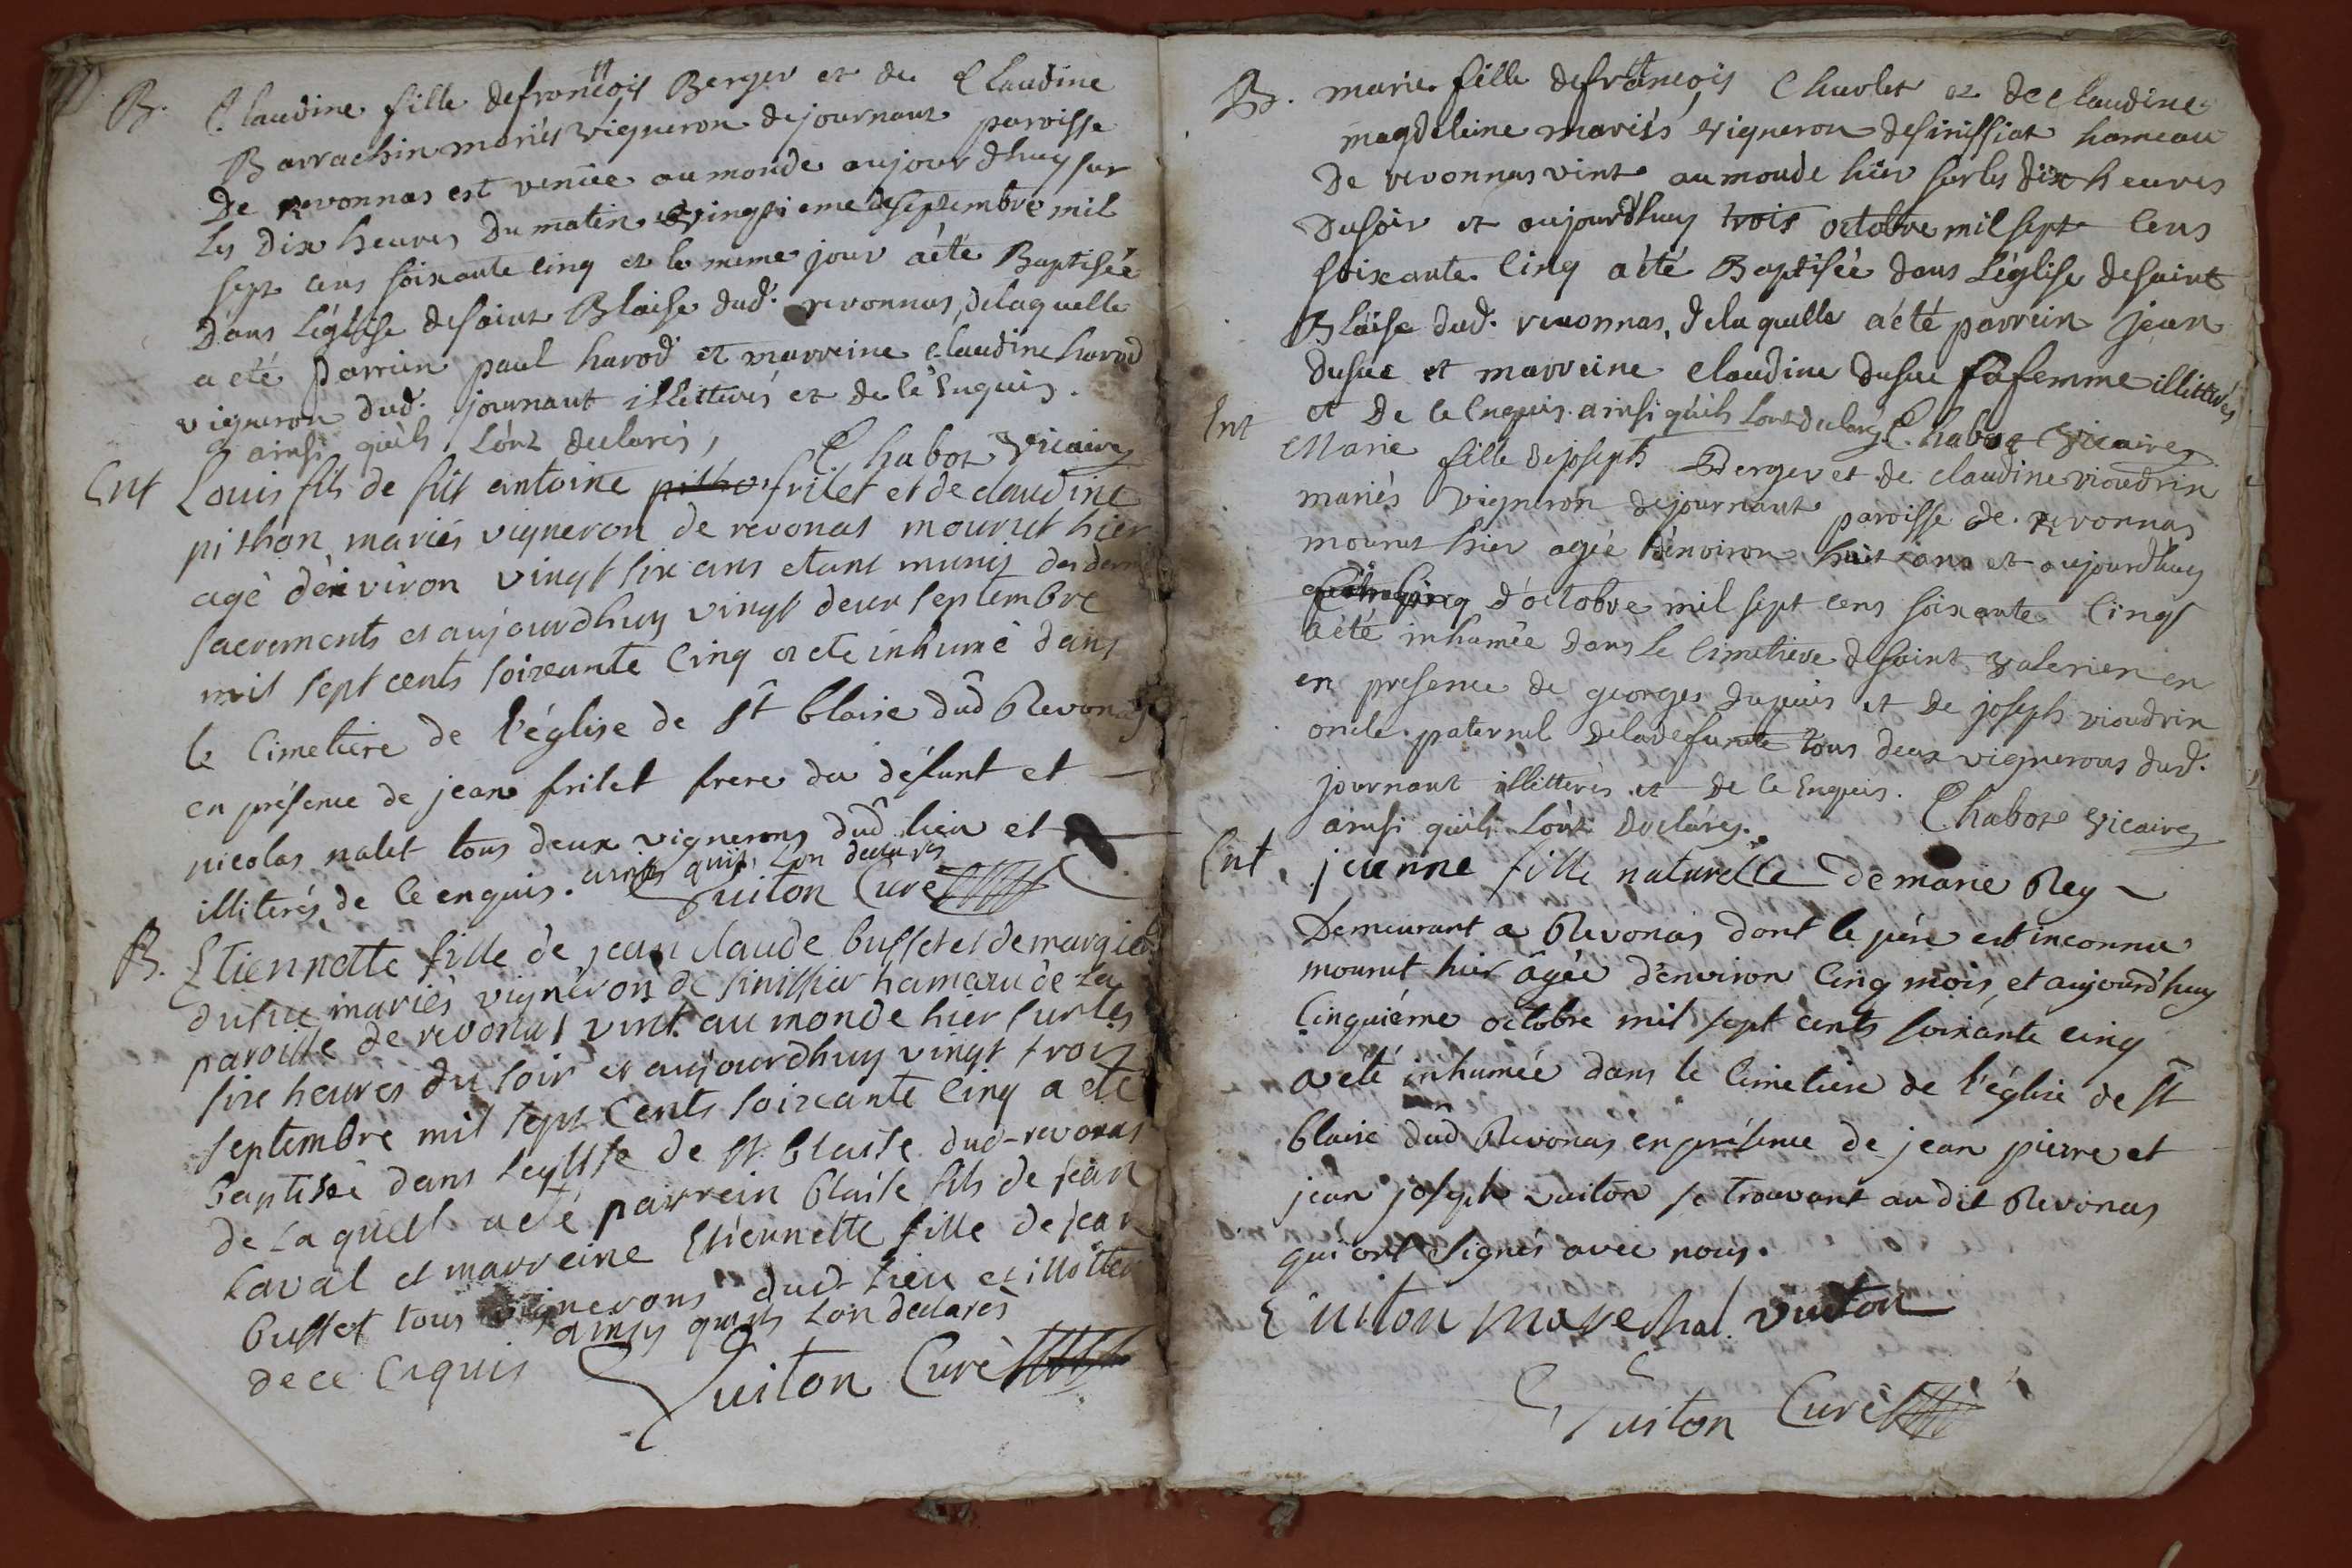 B. Claudine fille de françois Berger et de Claudine
Barrachin mariés vigneron de journant paroisse
De revonnas est venüe au monde aujourdhuy sur
les dix heures du matin vingtieme de septembre mil
sept cens soixante cinq et le meme jour a été Baptisée
Dans l'église de saint Blaise dud. revonnas, de laquelle
a été parrein paul harod et marreine Claudine harod
vigneron dud. journant illitterés et de ce Enquis.
ainsi qu'ils l'ont declarés, Chabot Vicaire
Ent Louis fils de fut antoine frilet et de claudine
pithon mariés vigneron de revonas mourut hier
agé d'environ vingt six ans etant munis des derni
sacrements et aujourdhuy vingt deux septembre
mil sept cents soixante cinq a ete inhumé dans
le cimetiere de l'église de st blaise dud Revonas
en présence de jean frilet frere du défunt et
nicolas nalet tous deux vignerons dud lieu et
illiterés de ce enquis. ainsy quils lon declarés
Vuiton Curé
B. Etiennette fille de jean claude buffet et de margie
dusuc mariés vigneron de sinissia hameau de la
paroisse de revonas vint au monde hier sur les
sixe heures du soir et aujourdhuy vingt trois
septembre mil sept cents soixante cinq a eté
baptisée dans leglise de st. blaise dud revonas
de laquell a eté parrein blaise fils de jean
laval et marreine Etiennette fille de jean
buffet tous vignerons dudt lieu et illitter
de ce enquis ainsy quils lon declarés
Vuiton Curé
B. marie fille de françois Charlet et de claudine
magdeleine mariés vigneron de sinissiat hameau
De revonnas vint au monde hier sur les dix heures
du soir et aujourdhuy trois octobre mil sept cens
soixante cinq a été Baptisée dans l'église de saint
Blaise dud. revonnas, de la quelle a été parrein jean
dusuc et marreine claudine dusuc sa femme illitterés
et de ce enquis. ainsi qu'ils l'ont declarés Chabot vicaire
Ent Marie fille de joseph Berger et de claudine vioudrin
mariés vigneron de journant paroisse de revonnas
mourut hier agée d'environ huit ans et aujourdhuy
cinq d'octobre mil sept cens soixante cinq
a été inhumée dans le cimetiere de saint valerien en
en presence de georges dupuis et de joseph vioudrin
oncle paternel de la défunte tous deux vignerons dud.
journant illitterés et de ce Enquis.
ainsi qu'ils l'ont declarés. Chabot vicaire
Ent. jeanne fille naturelle de marie Rey
Demeurant a Revonas dont le pére est inconnu
mourut hier âgée d'environ cinq mois, et aujourd'huy
cinquiéme octobre mil sept cents soixante cinq
a eté inhumée dans le cimetiere de l'église de st
blaise dud Revonas en présence de jean pierre et
jean joseph vuiton se trouvant au dit Revonas
qui ont signés avec nous.
Vuiton vuiton
Vuiton Curé